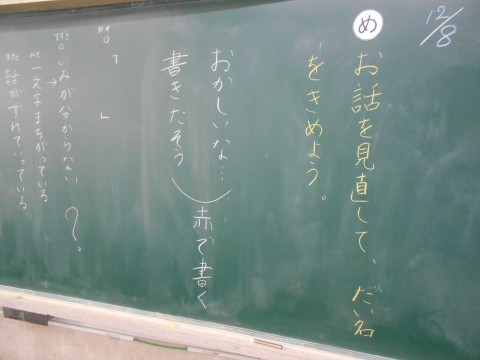 12/8
め お話を見直して、だい名
をきめよう。
おかしいな…
書きたそう
赤で書く
「 」
いみが分からない
一文字まちがっている
話がずれていっている
？